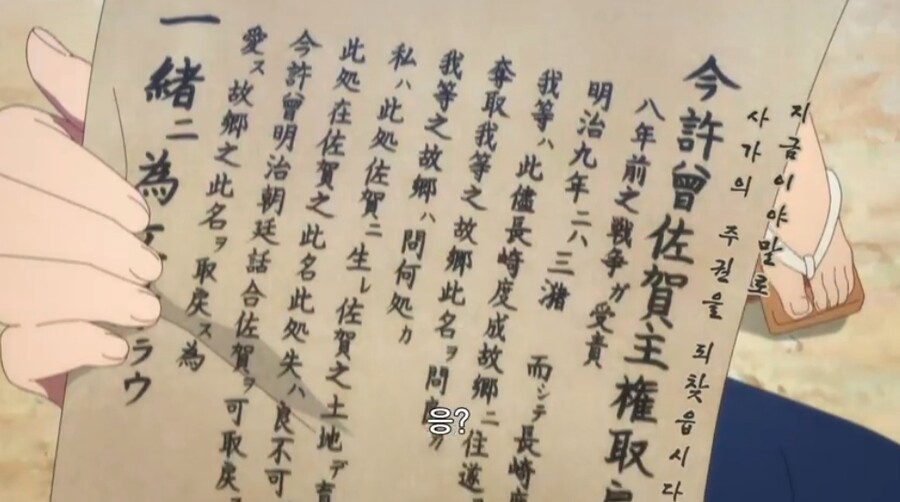 지금이야말로
사가의 주권을 되찾읍시다
今許曾佐賀主権取戻
八年前之戦争ガ受責
明治九年二ハ三潴
我等ハ此儘長崎度成故郷ニ住遂
而シテ長崎
奪取我等之故郷此名ヲ問
我等之故郷ハ問何処カ
私ハ此処佐賀ニ生レ佐賀之土地デ
此処在佐賀之此名此処失ハ良不可
今許曾明治朝廷話合佐賀ヲ可取戻
愛ス故郷之此名ヲ取戻ス為
一緒ニ為
ラウ
응?